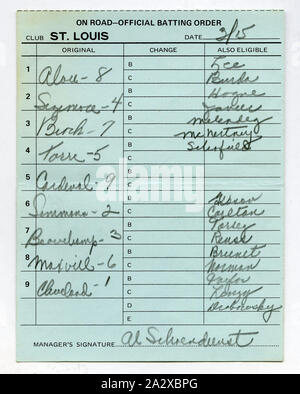 ON ROAD—OFFICIAL BATTING ORDER
CLUB ST. LOUIS DATE 3/15
ORIGINAL CHANGE ALSO ELIGIBLE
Lee
1 Alou - 8 B Burda
C Hague
2 - 4 B Javier
C Melendez
3 Brock - 7 B McNertney
C Schofield
4 Torre - 5 B
C
5 Cardenal - 9 B
C Gibson
6 Simmons - 2 B Carlton
C Torrez
7 Beauchamp - 3 B Reuss
C Brunet
8 Maxvill - 6 B Norman
C Taylor
9 Cleveland - 1 B Linzy
C Drabowsky
D
E
MANAGER'S SIGNATURE Al Schoendienst
alamy
Image ID: 2A2XBPG
www.alamy.com